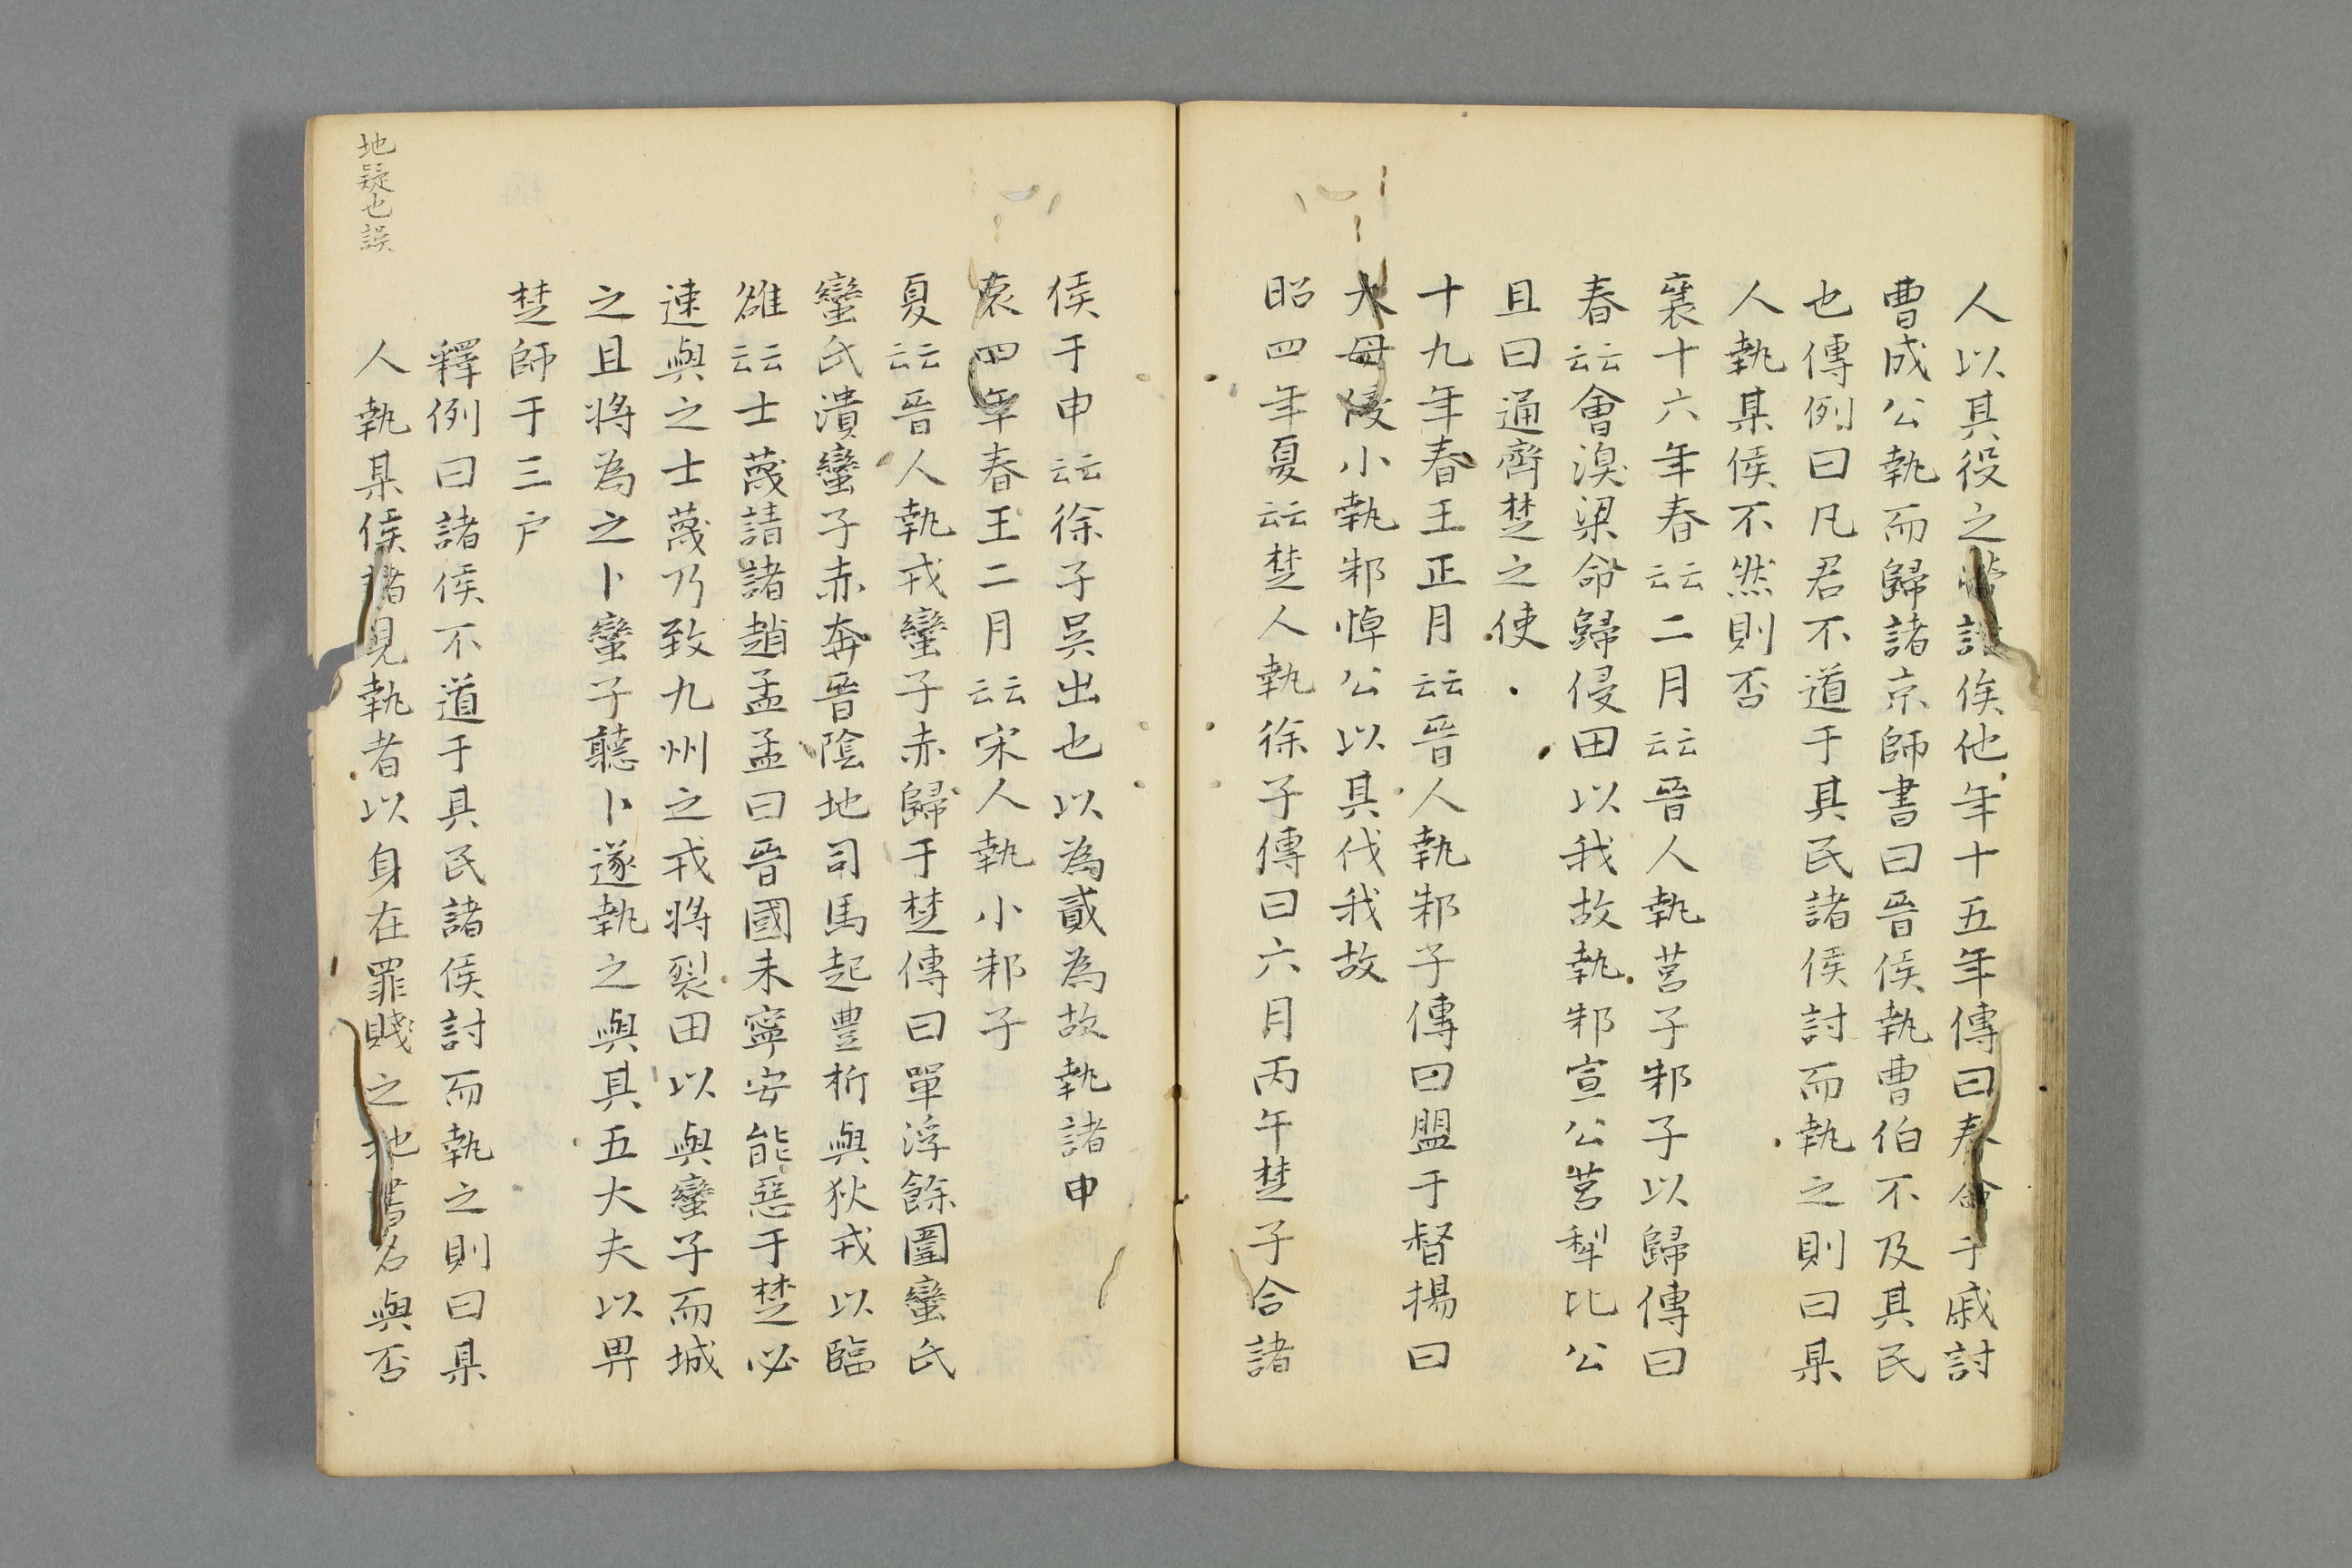 人以其役之諸侯他年十五年傳曰春會于戚討
曹成公執而歸諸京師書曰晉侯執曹伯不及其民
也傳例曰凡君不道于其民諸侯討而執之則曰某
人執某侯不然則否
襄十六年春云云二月云云晉人執莒子邾子以歸傳曰
春云云會湨梁命歸侵田以我故執邾宣公莒犁比公
且曰通齊楚之使
十九年春王正月云云晉人執邾子傳曰盟于督揚曰
大毋侵小執邾悼公以其伐我故
昭四年夏云云楚人執徐子傳曰六月丙午楚子合諸
侯于申云云徐子吳出也以為貳為故執諸申
哀四年春王二月云云宋人執小邾子
夏云云晉人執戎蠻子赤歸于楚傳曰單浮餘圍蠻氏
蠻氏潰蠻子赤奔晉陰地司馬起豊析與狄戎以臨
雒云云士蔑請諸趙孟孟曰晉國未寧安能惡于楚必
速與之士蔑乃致九州之戎將裂田以與蠻子而城
之且將為之卜蠻子聽卜遂執之與其五大夫以畀
楚師于三户
釋例曰諸侯不道于其民諸侯討而執之則曰某
人執某侯諸見執者以身在罪賤之地書名與否
地疑也誤